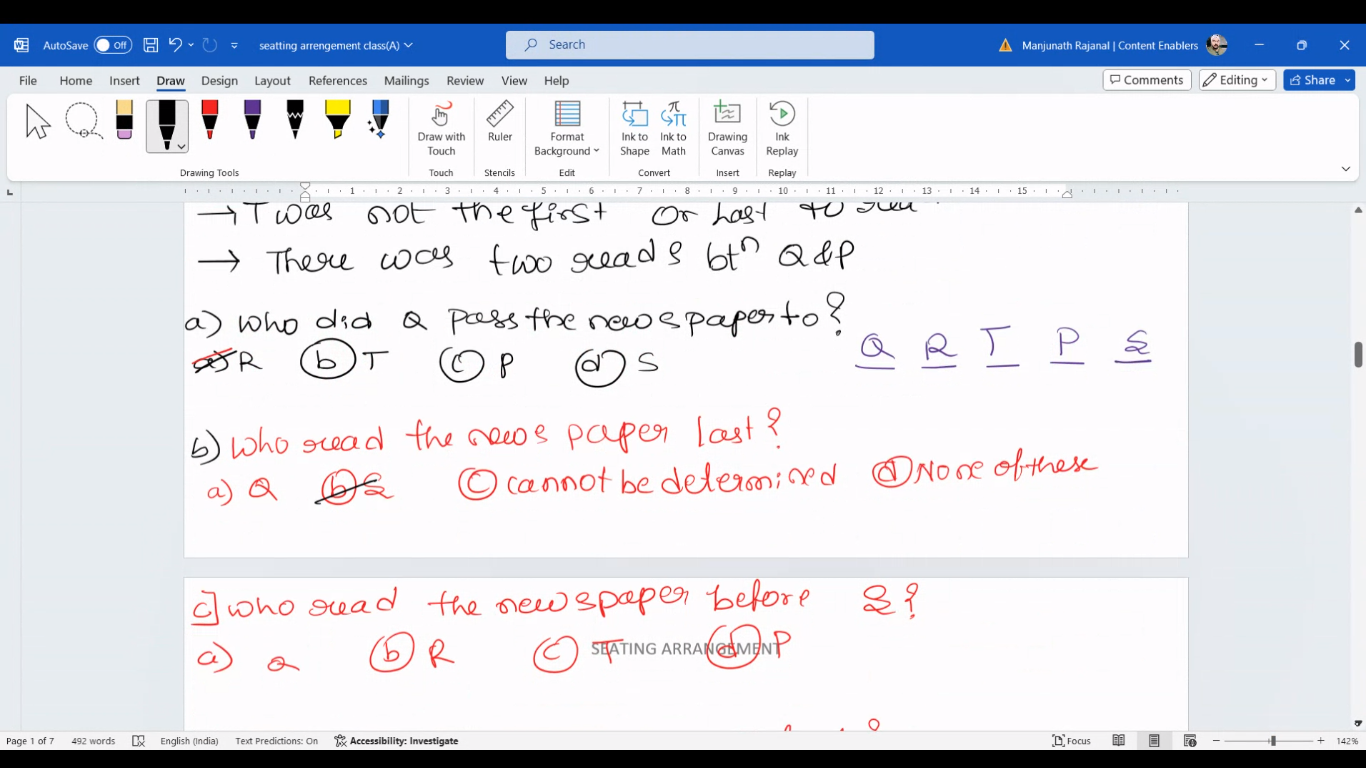 AutoSave Off seatting arrangement class(A) Search Manjunath Rajanal | Content Enablers
File Home Insert Draw Design Layout References Mailings Review View Help Comments Editing Share
Draw with Touch Ruler Format Background Ink to Shape Ink to Math Drawing Canvas Ink Replay
Drawing Tools Touch Stencils Edit Convert Insert Replay
1 2 3 4 5 6 7 8 9 10 11 12 13 14 15
→ T was not the first or Last to
→ There was two reads btn Q & P
a) who did Q pass the newspaper to?
a) R b) T c) P d) S
Q R T P S
b) who read the news paper last?
a) Q b) S c) cannot be determined d) None of these
c] who read the newspaper before S?
a) Q b) R c) T d) P
SEATING ARRANGEMENT
Page 1 of 7 492 words English (India) Text Predictions: On Accessibility: Investigate Focus 142%